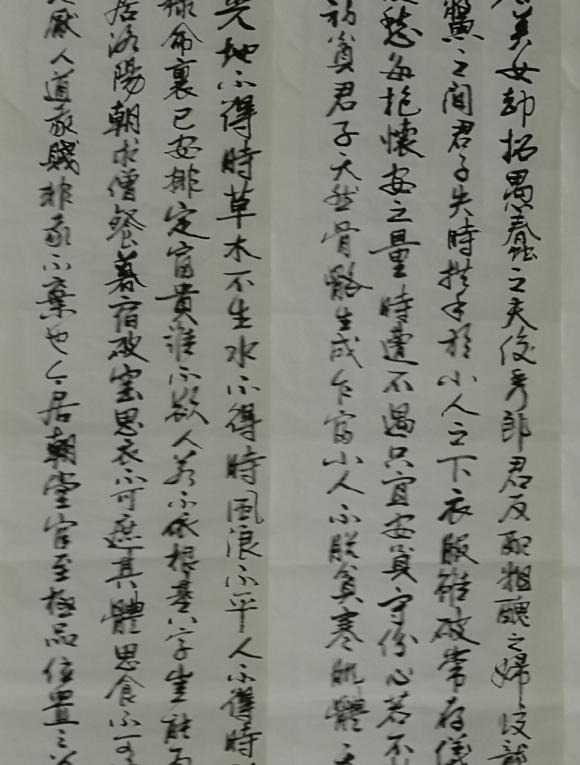 美女却招愚蠢之夫俊秀郎君反配粗醜之婦蛟龍
鱉之間君子失時拱手於小人之下衣服雖破常存儀
愁每抱懷安之量時遭不遇只宜安貧守份心若不
初貧君子天然骨骼生成乍富小人不脱貧寒肌體
地不得時草木不生水不得時風浪不平人不得時
命裏已安排定富貴誰不欲人若不依根基八字豈能
居洛陽朝求僧餐暮宿破窑思衣不可遮其體思食不可
人道我賤非我不棄也今居朝堂官至極品位置之